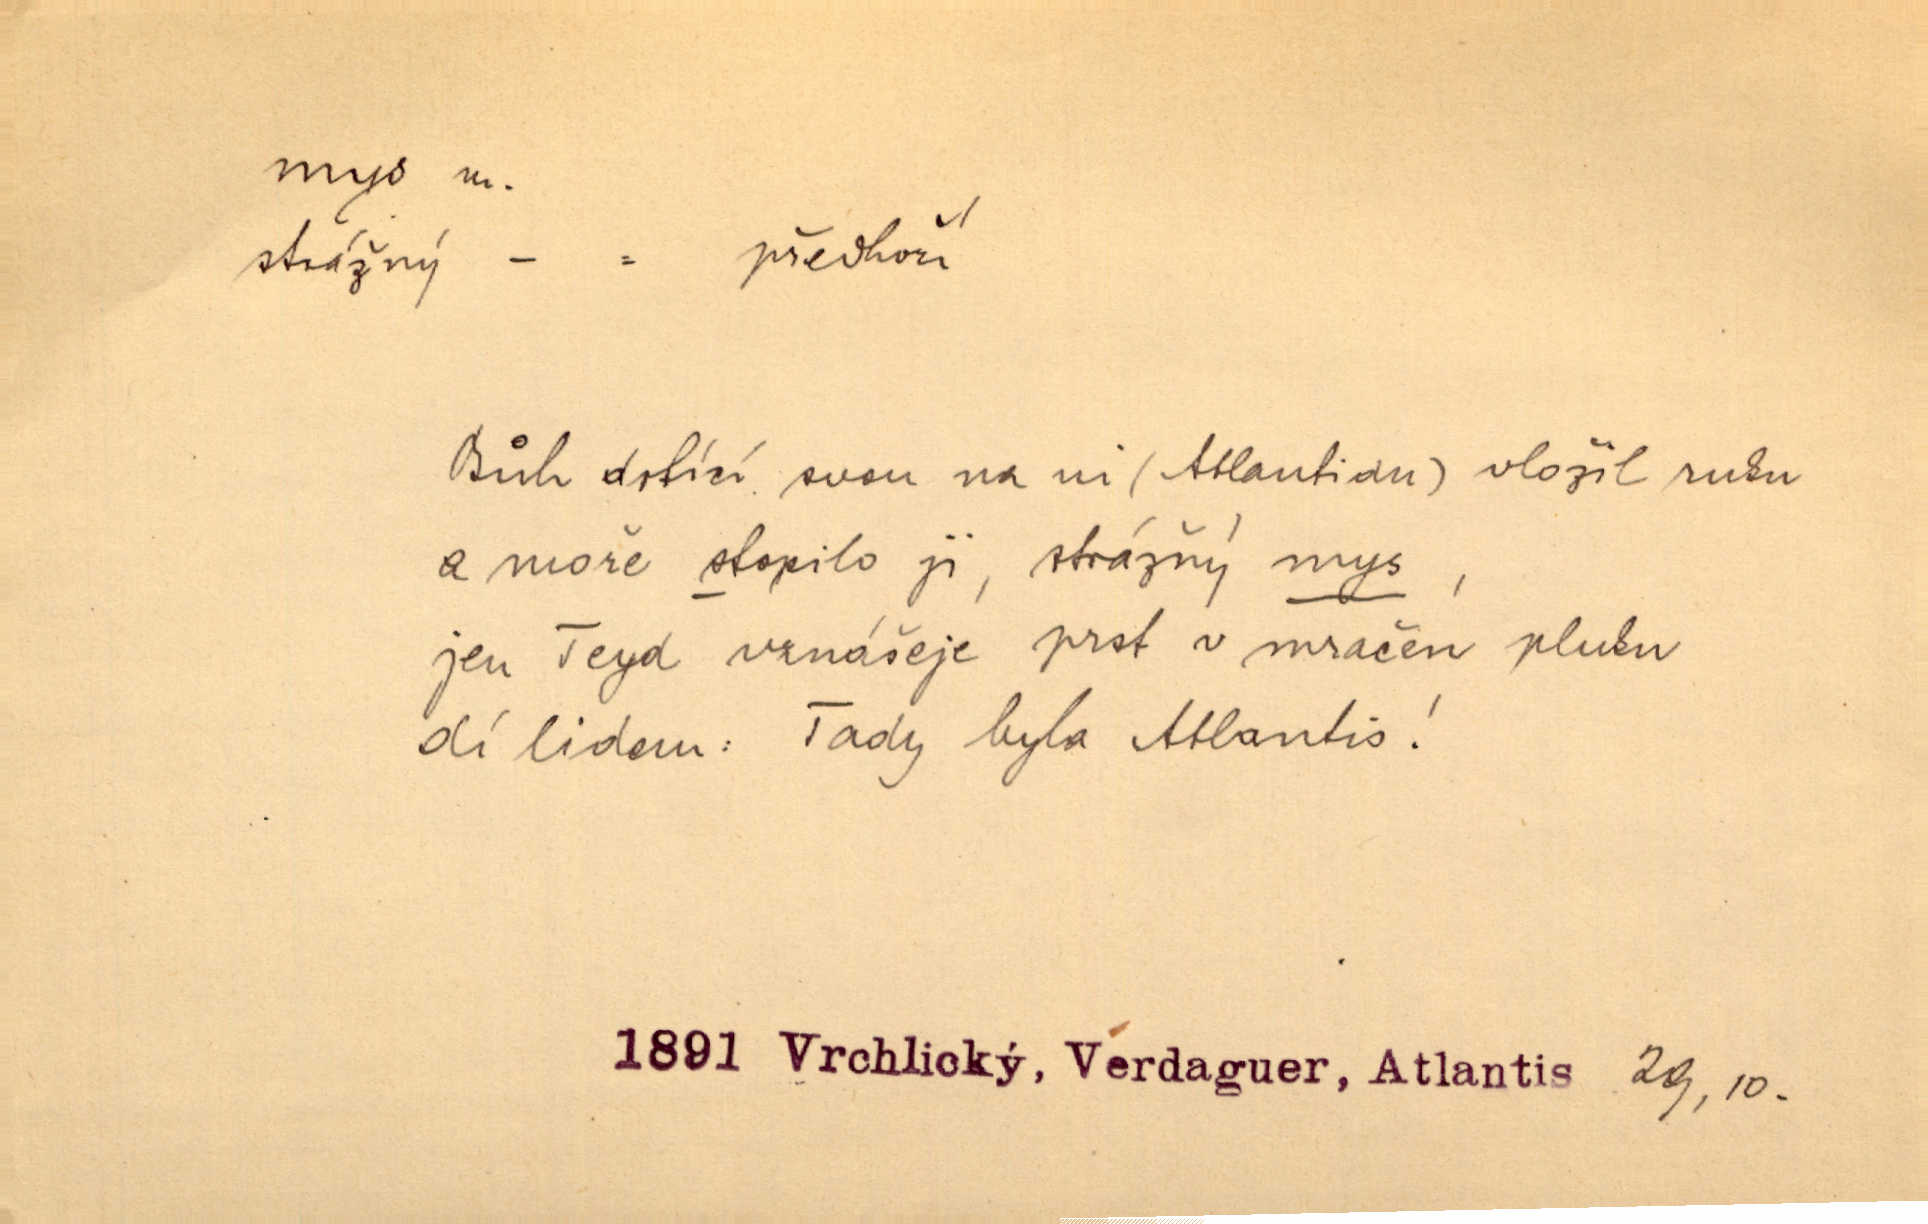 mys m.
strážný - = předhoří
Bůh dstící svou na ni (Atlantidu) vložil ruku
a moře stopilo ji, strážný mys,
jen Teyd vznášeje prst v mračen pluku
dí lidem: Tady byla Atlantis!
1891 Vrchlický, Verdaguer, Atlantis 29, 10.